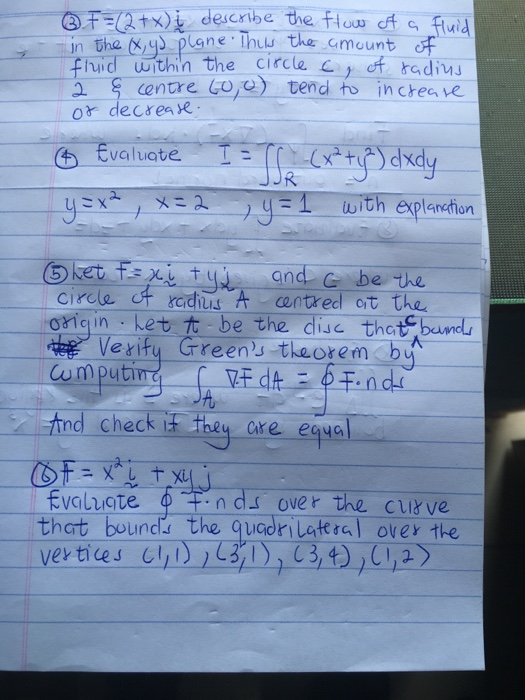 ③ F=(2+x)i describe the flow of a fluid
in the (x,y) plane. Thus the amount of
fluid within the circle c, of radius
2 & centre (0,0) tend to increase
or decrease.
④ Evaluate I = ∬R (x²+y²)dxdy
y=x², x=2, y=1 with explanation
⑤ Let F=xi + yj and C be the
circle of radius A centred at the
origin. Let A be the disc that C bounds
Verify Green's theorem by
computing ∫A ∇.F dA = ∮ F.n ds
And check if they are equal
⑥ F = x²i + xyj
Evaluate ∮ F.n ds over the curve
that bounds the quadrilateral over the
vertices (1,1), (3,1), (3,4), (1,2)